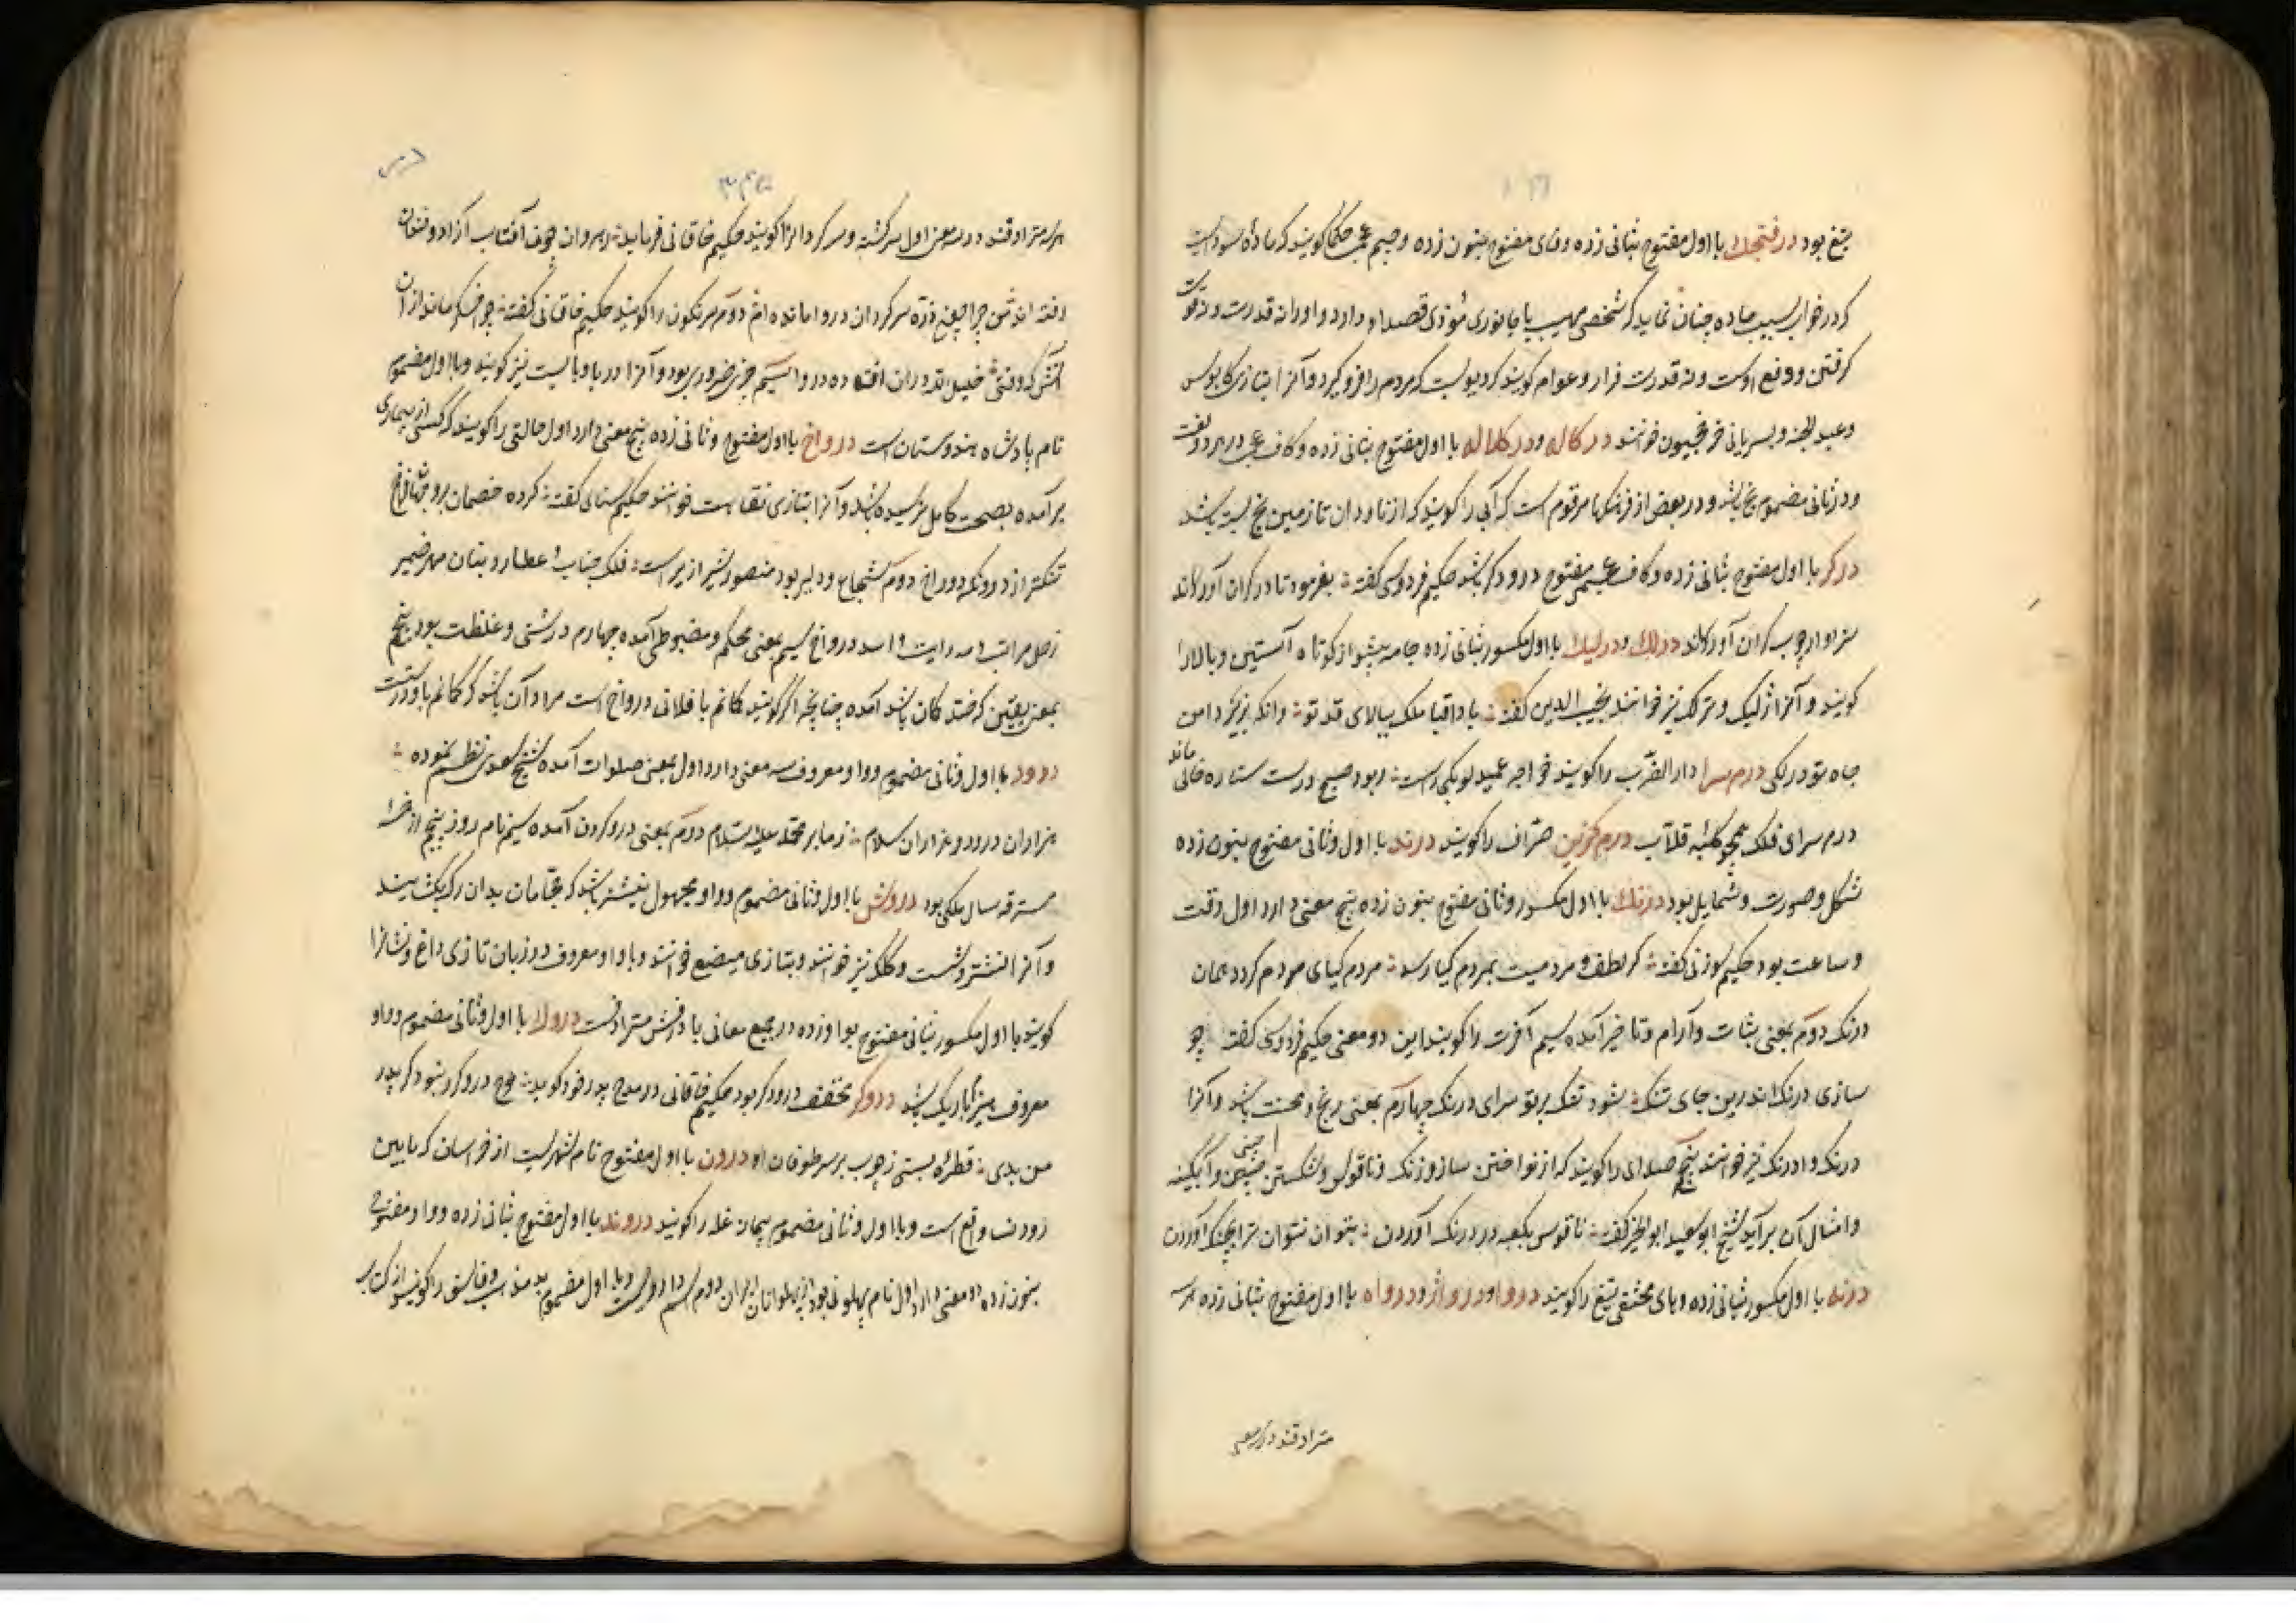 تیغ بود درفنجک با اول مفتوح بثانی زده وفای مفتوح بنون زده وجیم عجمی حکما کویند که ماده سوداست
که در خواب بسبب ماده چنان نماید که شخصی مهیب یا جانوری موذی قصد او دارد و او را نه قدرت و نه قوت
کرفتن و دفع اوست و نه قدرت فرار و عوام کویند که دیویست که مردم را فرو کیرد و آنرا بتازی کابوس
و عبد الجنه و بسریانی خوانند درکاله و درکلاله با اول مفتوح بثانی زده و کاف عجمی در هر دو لغت
و در ثانی مضموم یخ باشد و در بعض از فرهنکها مرقوم است که آبی را کویند که از ناودان تا زمین یخ بسته باشد
درکر با اول مفتوح بثانی زده و کاف عجمی مفتوح درودکر باشد حکیم فردوسی کفته بفرمود تا درکران آورند
سزاوار چوب کران آورند درلک و درلیک با اول مکسور بثانی زده جامه پیشواز کوتاه آستین و بالا را
کویند و آنرا ترلیک و ترلک نیز خوانند نجیب الدین کفته با داقبا ملک ببالای قد تو وانکه بزیر دامن
جاه تو درلکی درم سرا دار الضرب را کویند خواجه عمید لوبکی راست ربود صبح درست ستاره خالی ماند
درم سرای فلک همچو کلبه قلاب درم کزین صراف را کویند درند با اول وثانی مفتوح بنون زده
شکل و صورت و شمایل بود درنک با اول مکسور وثانی مفتوح بنون زده پنج معنی دارد اول وقت
و ساعت بود حکیم سوزنی کفته کر لطف و مردمیت بمردم کیا رسد مردم کیای مردم کردد همان
درنک دوم بمعنی ثبات و آرام و تاخیر آمده سیم آخرت را کویند این دو معنی حکیم فردوسی کفته چو
سازی درنک اندرین جای تنک شود تنک بر تو سرای درنک چهارم بمعنی رنج و محنت باشد و آنرا
درنک و ادرنک نیز خوانند پنجم صدای را کویند که از نواختن ساز و زنک و ناقوس و شکستن چینی و آبکینه
و امثال آن برآید شیخ ابو سعید ابو الخیر کفته ناقوس بکعبه در درنک آوردن بتوان نتوان ترا بچنک آوردن
درنه با اول مکسور بثانی زده و های مختفی تیغ را کویند دروا و درواژ و درواه با اول مفتوح بثانی زده هر سه
مترادفند در سه معنی
۳۴۵
هر سه مترادفند در سه معنی اول سرکشته و سرکردان را کویند حکیم خاقانی فرماید رهروان چون آفتاب آزاد و خندان
رفته اند من چرا چون ذره سرکردان دروا مانده ام دوم سرنکون را کویند حکیم خاقانی کفته
خلیل اندران افتاده دروا سیم چیز ضروری بود و آنرا دربا و بایست نیز کویند و با اول مضموم
نام پادشاه هندوستان است درواخ با اول مفتوح و ثانی زده پنج معنی دارد اول حالتی را کویند که کسی از بیماری
برآمده بصحت کامل نرسیده باشد و آنرا بتازی نقاهت خوانند حکیم سنائی کفته کرده خصمان برو جهان فراخ
تنکتر از درونکه درواخ دوم شجاع و دلیر بود منصور شیرازی راست فلک جناب عطارد بنان مهر ضمیر
زحل مراتب مه رایت و اسد درواخ سیم بمعنی محکم و مضبوطی آمده چهارم درشتی و غلظت بود پنجم
بمعنی یقین کرفتند کان باشد آمده چنانچه اکر کویند کانم با فلانی درواخ است مراد آن باشد که کانم با او درستست
درود با اول وثانی مضموم وواو معروف سه معنی دارد اول بمعنی صلوات آمده شیخ سعدی نظم نموده
هزاران درود و هزاران سلام ز ما بر محمد علیه السلام دوم بمعنی درو کردن آمده سیم نام روز پنجم از خمسه
مسترقه سال ملکی بود دروش با اول وثانی مضموم وواو مجهول نیشتر باشد که حجامان بدان رک بکشایند
و آنرا نشتر و نشت و کلک نیز خوانند و بتازی مبضع خوانند و با واو معروف در زبان تازی داغ و نشان را
کویند با اول مکسور بثانی مفتوح بواو زده در جمیع معانی با درفش مترادفست درولا با اول وثانی مضموم وواو
معروف باریک باشد دروکر مخفف درودکر بود حکیم خاقانی در مدح پدر خود کوید نوح دروکر نبود کر پدر
من بدی قنطره بستی ز چوب بر سر طوفان او درون با اول مفتوح نام شهریست از خراسان که مابین
رود نسا واقع است و با اول وثانی مضموم پیمانه غله را کویند دروند با اول مفتوح بثانی زده وواو مفتوح
بنون زده دو معنی دارد اول نام پهلوانی بود از پهلوانان ایران دوم و با اول مضموم بد مذهب و فاسق را کویند از کتاب